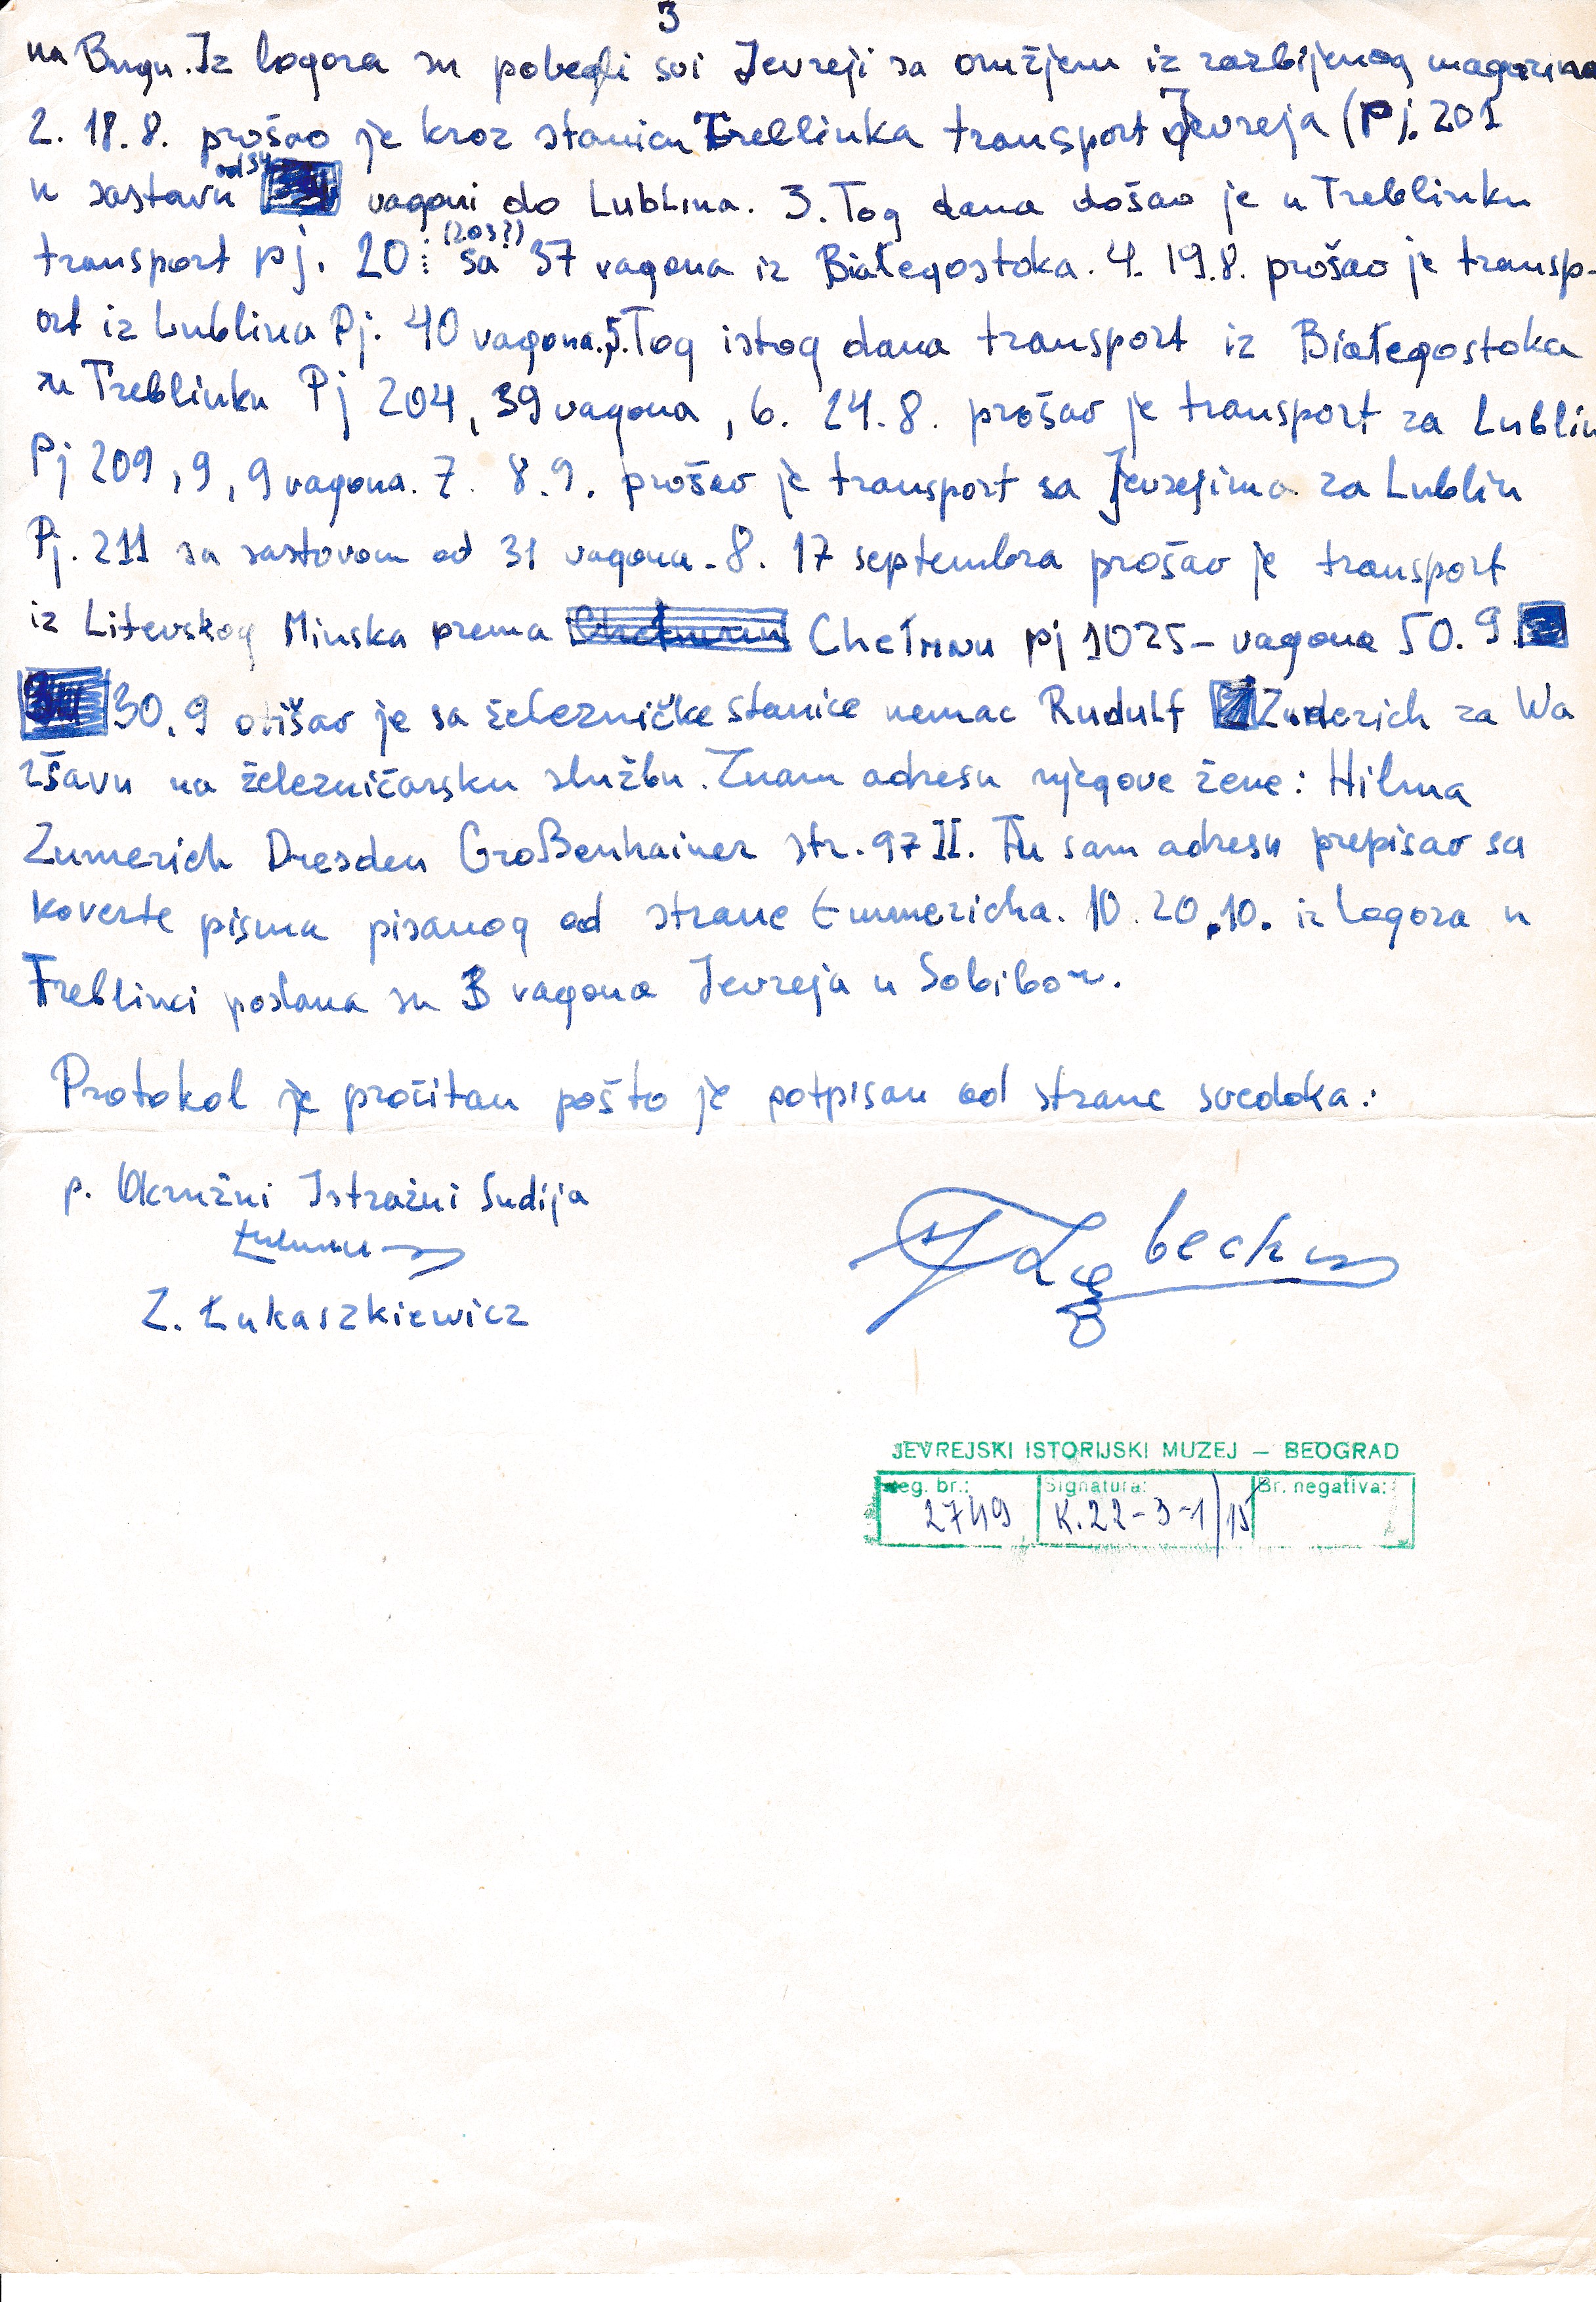 3
na Bugu. Iz logora su pobegli svi Jevreji sa oružjem iz razbijenog magazina
2. 18.8. prošao je kroz stanicu Treblinka transport Jevreja (Pj. 201
od 34
u sastavu vagoni do Lublina. 3. Tog dana došao je u Treblinku
(203?)
transport pj. 20⋮ sa 37 vagona iz Białegostoka. 4. 19.8. prošao je transp-
ort iz Lublina Pj. 40 vagona. 5. Tog istog dana transport iz Białegostoka
u Treblinku Pj 204, 39 vagona, 6. 24.8. prošao je transport za Lublin
Pj 209, 9, 9 vagona. 7. 8.9. prošao je transport sa Jevrejima za Lublin
Pj. 211 sa sastovom od 31 vagona. 8. 17 septembra prošao je transport
iz Litevskog Minska prema Chełmnu pj 1025 - vagona 50. 9.
30.9 otišao je sa železničke stanice nemac Rudolf za Wa
ršavu na železničarsku službu. Znam adresu njegove žene: Hilma
Zumerich Dresden Großenhainer str. 97 II. Tu sam adresu prepisao sa
koverte pisma pisanog od strane Emmericha. 10. 20.10. iz logora u
Treblinci poslana su 3 vagona Jevreja u Sobibor.
Protokol je pročitan pošto je potpisan od strane svedoka:
p. Okružni Istražni Sudija
Z. Łukaszkiewicz
JEVREJSKI ISTORIJSKI MUZEJ — BEOGRAD
Reg. br.: Signatura: Br. negativa:
2749 K.22-3-1/15